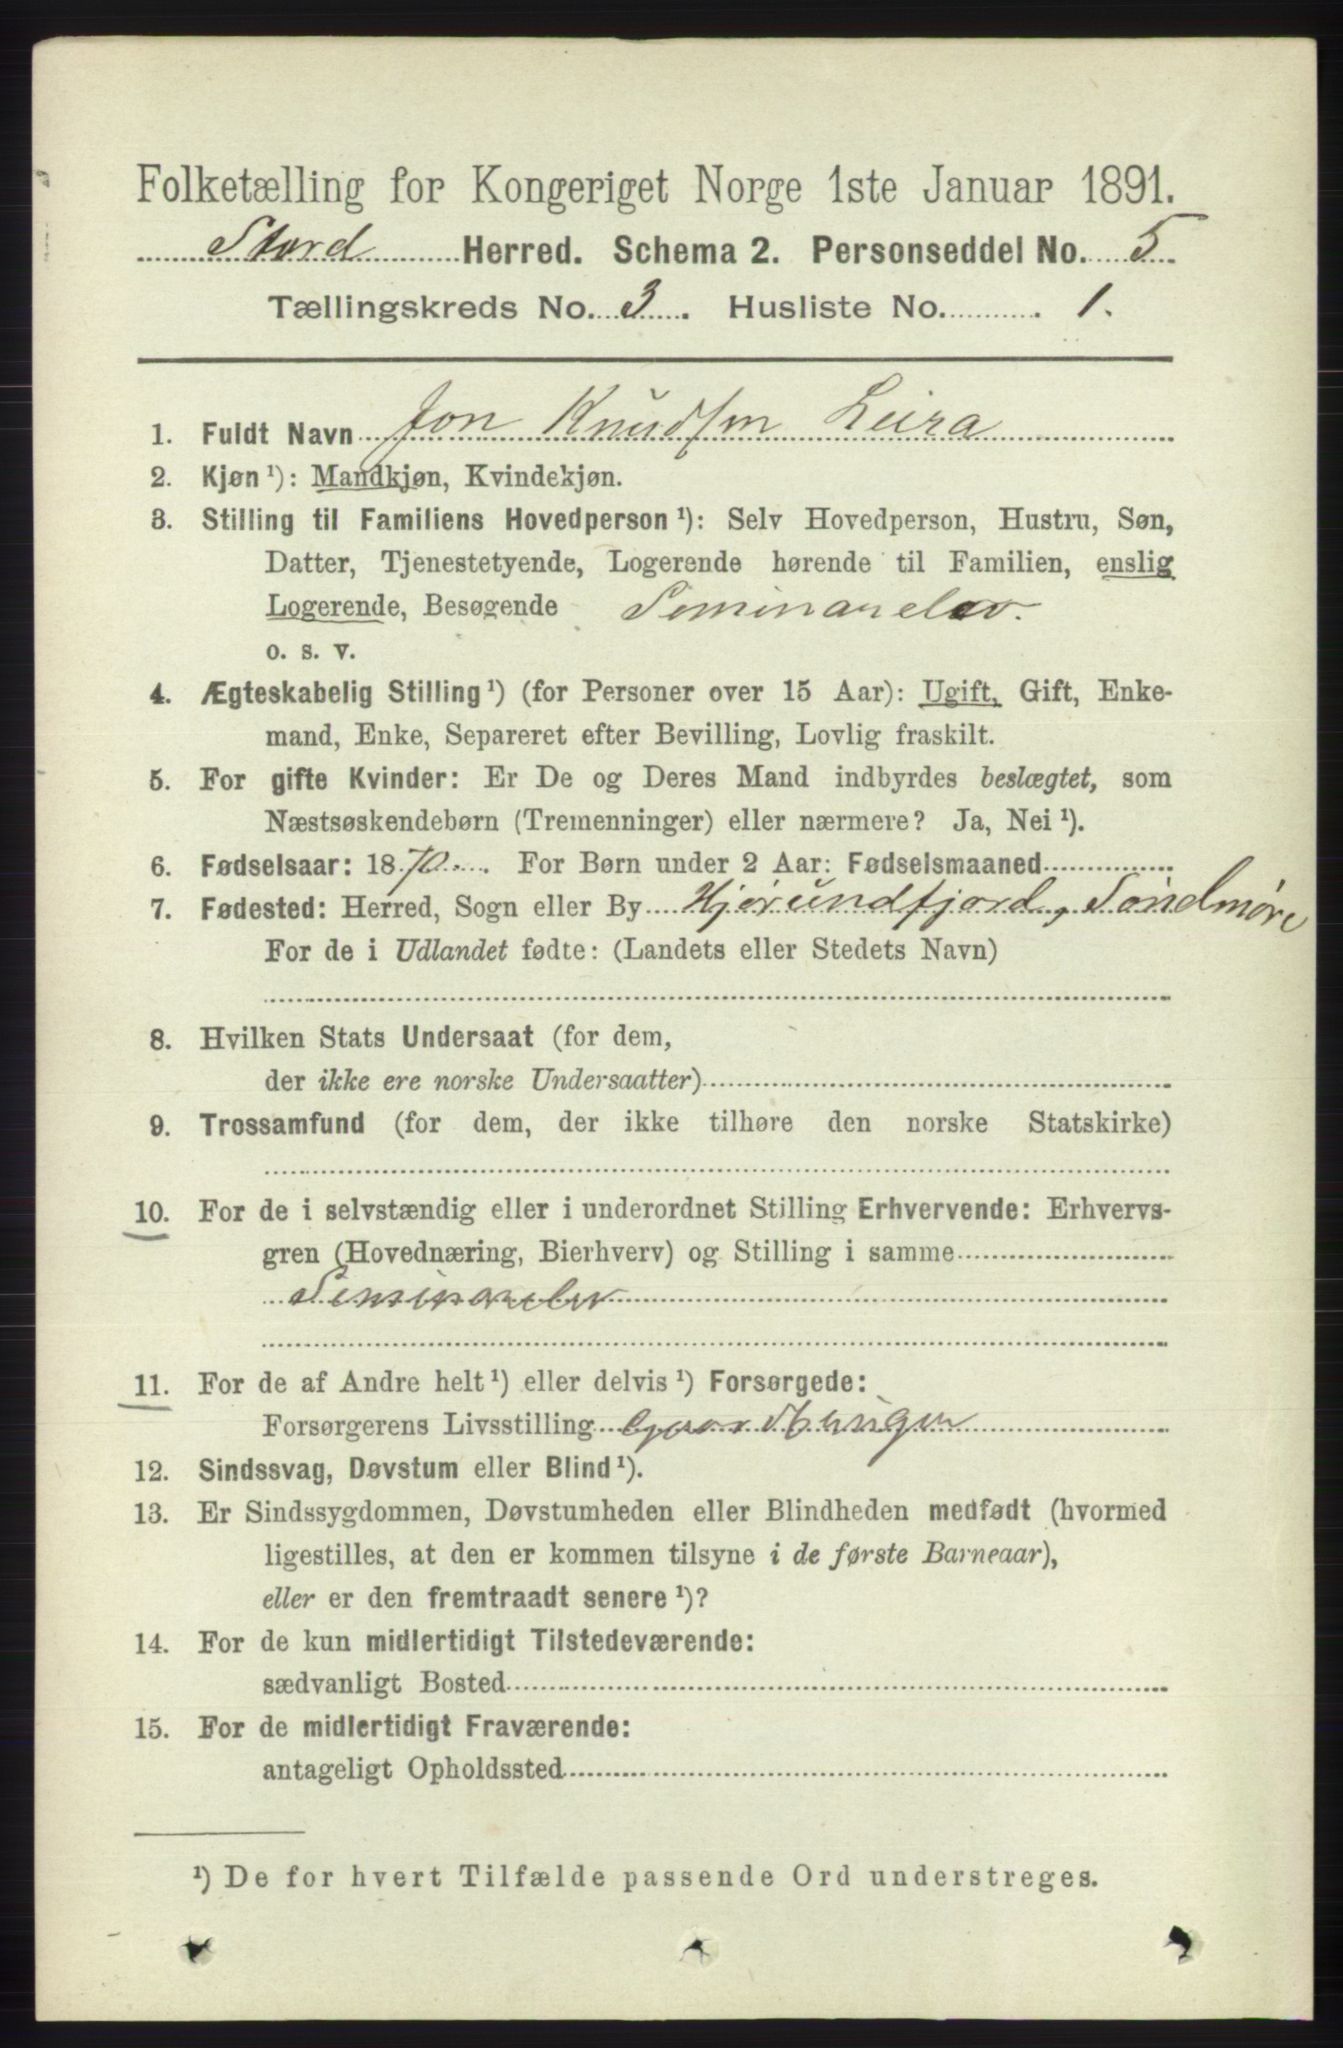 Folketælling for Kongeriget Norge 1ste Januar 1891.
Stord Herred. Schema 2. Personseddel No. 5
Tællingskreds No. 3. Husliste No. 1.
1. Fuldt Navn Jon Knudsen Leira
2. Kjøn ¹): Mandkjøn, Kvindekjøn.
3. Stilling til Familiens Hovedperson ¹): Selv Hovedperson, Hustru, Søn,
Datter, Tjenestetyende, Logerende hørende til Familien, enslig
Logerende, Besøgende Seminarelev.
o. s. v.
4. Ægteskabelig Stilling ¹) (for Personer over 15 Aar): Ugift, Gift, Enke-
mand, Enke, Separeret efter Bevilling, Lovlig fraskilt.
5. For gifte Kvinder: Er De og Deres Mand indbyrdes beslægtet, som
Næstsøskendebørn (Tremenninger) eller nærmere? Ja, Nei ¹).
6. Fødselsaar: 1870. For Børn under 2 Aar: Fødselsmaaned
7. Fødested: Herred, Sogn eller By Hjørundfjord, Søndmøre
For de i Udlandet fødte: (Landets eller Stedets Navn)
8. Hvilken Stats Undersaat (for dem,
der ikke ere norske Undersaatter)
9. Trossamfund (for dem, der ikke tilhøre den norske Statskirke)
10. For de i selvstændig eller i underordnet Stilling Erhvervende: Erhvervs-
gren (Hovednæring, Bierhverv) og Stilling i samme
Seminarelev
11. For de af Andre helt ¹) eller delvis ¹) Forsørgede:
Forsørgerens Livsstilling Gaardbruger
12. Sindssvag, Døvstum eller Blind ¹).
13. Er Sindssygdommen, Døvstumheden eller Blindheden medfødt (hvormed
ligestilles, at den er kommen tilsyne i de første Barneaar),
eller er den fremtraadt senere ¹)?
14. For de kun midlertidigt Tilstedeværende:
sædvanligt Bosted
15. For de midlertidigt Fraværende:
antageligt Opholdssted
¹) De for hvert Tilfælde passende Ord understreges.